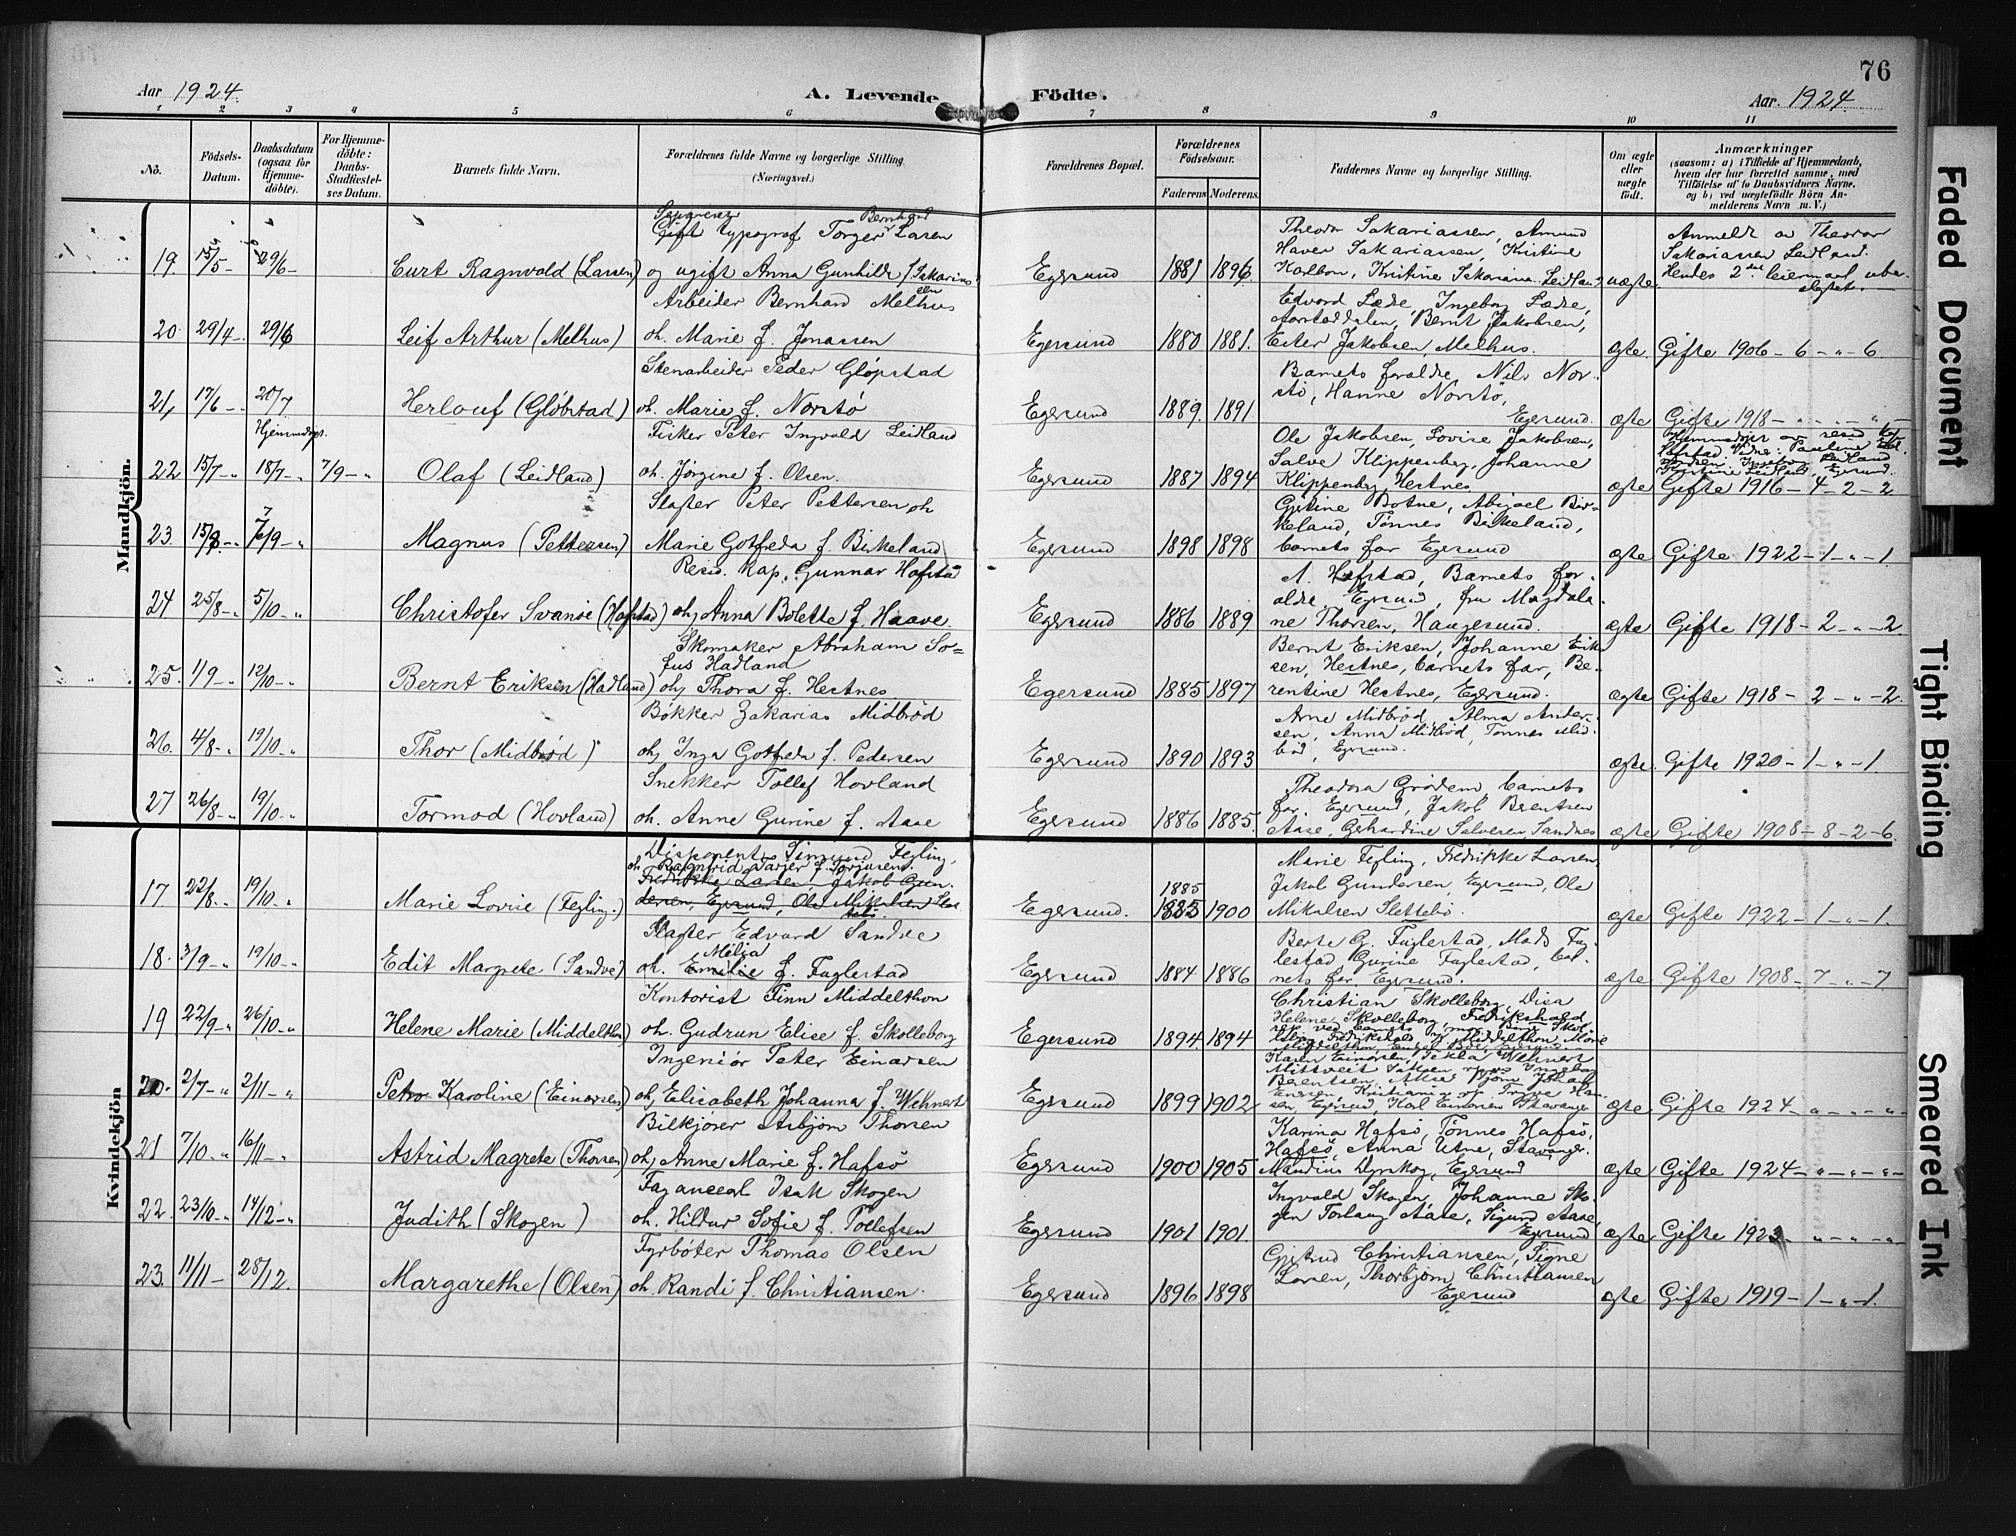 76
Aar 1924.
A. Levende Födte.
Aar. 1924.
1 2 3 4 5 6 7 8 9 10 11
No.
Födsels-Datum.
Daabsdatum (ogsaa for Hjemmedöbte).
For Hjemmedöbte: Daabs-Stadfæstelses Datum.
Barnets fulde Navn.
Forældrenes fulde Navne og borgerlige Stilling.
(Næringsvei.)
Forældrenes Bopæl.
Forældrenes Födselsaar.
Faderens Moderens
Faddernes Navne og borgerlige Stilling.
Om ægte eller uægte födt.
Anmærkninger
(saasom: a) i Tilfælde af Hjemmedaab, hvem der har forrettet samme, med Tilföielse af to Daabsvidners Navne, og b) ved uægtefödte Börn Anmelderens Navn m. V.)
Mandkjön.
19. 15/5 29/6 Curt Ragnvald (Larsen)
Gift typograf Torger Bernhard Larsen
og ugift Anna Gunhilde
Egersund 1881 1896
Theodor Sakariassen, Amund
Haver Sakariassen, Kristine
uægte.
Anmeldt av Theodor
Sakariassen Leidland.
20. 29/4 29/6 Leif Arthur (Melhus)
Arbeider Bernhard Melhus
oh. Marie f. Jonassen
Egersund 1880 1881.
Edvard Læde, Ingeborg Læde,
Aarstaddalen, Bernt Jakobsen,
Ester Jakobsen, Melhus.
ægte Gifte 1906-6-"-6
21, 17/6 20/7 Herlouf (Glöbstad)
Stenarbeider Peder Glöpstad
oh. Marie f. Norstö
Egersund 1889. 1891
Barnets foraldre, Nils Norstö, Hanne Norstö,
Egersund.
ægte Gifte 1918
22 15/7 18/7 7/9 Olaf (Leidland)
Fisker Peter Ingvald Leidland
oh. Jörgine f. Olsen.
Egersund 1887 1894
Ole Jakobsen, Lovise Jakobsen,
Salve Klippenberg, Johanne
Klippenberg Hestnes
ægte Gifte 1916-4-2-2
23. 15/8 7/9 Magnus (Pettersen)
Slagter Peter Pettersen oh
Marie Gotfreda f. Birkeland
Egersund 1898 1898
Gjetine Botne, Abigael Birkeland, Tönnes Birkeland,
barnets far Egersund
ægte Gifte 1922-1-"-1
24 25/8 5/10 Christofer Svanöe (Hofstad)
Resid. Kap. Gunnar Hofstad
oh, Anna Bolette f. Haave.
Egersund 1886 1889
A. Hofstad, Barnets foraldre Egersund, fru Magdalene Thorsen, Haugesund.
ægte Gifte 1918-2-"-2.
25. 1/9 12/10 Bernt Eriksen (Hadland)
Skomaker Abraham Sofus Hadland
oh, Thora f. Hestnes.
Egersund 1885 1897
Bernt Eriksen, Johanne Eriksen, Hestnes, barnets far, Berentine Hestnes, Egersund.
ægte Gifte 1918-2-"-2.
26. 4/8 19/10 Thor (Midbröd)
Bökker Zakarias Midbröd
oh, Inga Gotfreda f. Pedersen
Egersund 1890 1893
Arne Midbröd, Alma Andersen, Anna Midbröd, Tönnes Midbröd, Egersund.
ægte. Gifte 1920-1-"-1.
27 26/8 19/10 Tormod (Hovland)
Snekker Tollef Hovland
oh. Anne Gurine f. Aase
Egersund 1886 1885.
Theodora Grödem, barnets
far, Egersund, Jakob Berentsen
Aase, Gehardine Salvesen Sandnes
ægte Gifte 1908-8-2-6
Kvindekjön
17 22/8 19/10 Marie Lovise (Fegling.)
Disponent Simund Fegling,
Egersund. 1885 1900
Marie Fegling, Fredrikke Larsen,
Jakob Gundersen, Egersund, Ole
Mikalsen Slettebö.
ægte Gifte 1922-1-"-1.
18. 3/9 19/10 Edit Margrete (Sandve)
Slagter Edvard Sandve
oh. Melia f. Fuglestad
Egersund 1884 1886
Berte G. Fuglestad, Mads Fuglestad, Gurine Fuglestad, barnets far, Egersund.
ægte Gifte 1908-7-"-7
19 22/9 26/10 Helene Marie (Middelthon)
Kontorist Finn Middelthon
oh. Gudrun Elise f. Skolleborg
Egersund 1894 1894
Christian Skolleborg, Disa
Helene Skolleborg, Fredrikshald
20. 2/7 2/11 Petra Karoline (Einarsen)
Ingeniör Peter Einarsen
oh, Elisabeth Johanna f. Wehnert
Egersund 1899 1902
Karen Einarsen, Tekla Wehnert
ægte Gifte 1924
21 7/10 16/11 Astrid Magrete (Thorsen)
Bilkjörer Asbjörn Thorsen
oh, Anne Marie f. Hafsö
Egersund 1900 1905
Karina Hafsö, Tönnes Hafsö,
Hafsö, Anna Utne, Stavanger.
Mandius Dyrskog, Egersund
ægte Gifte 1924
22. 23/10 14/12 Judith (Skogen)
Isak Skogen
oh. Hildur Sofie f. Tollefsen
Egersund 1901 1901.
Ingvald Skogen, Johanne Skogen Torlaug Aase, Sigurd Aase,
Egersund
ægte Gifte 1923
23. 11/11 28/12. Margarethe (Olsen)
Fyrböter Thomas Olsen
oh. Randi f. Christiansen.
Egersund 1896 1898
Gjetrud Christiansen, Signe
Larsen, Thorbjörn Christiansen
Egersund
ægte Gifte 1919-1-"-1.
Faded Document
Tight Binding
Smeared Ink